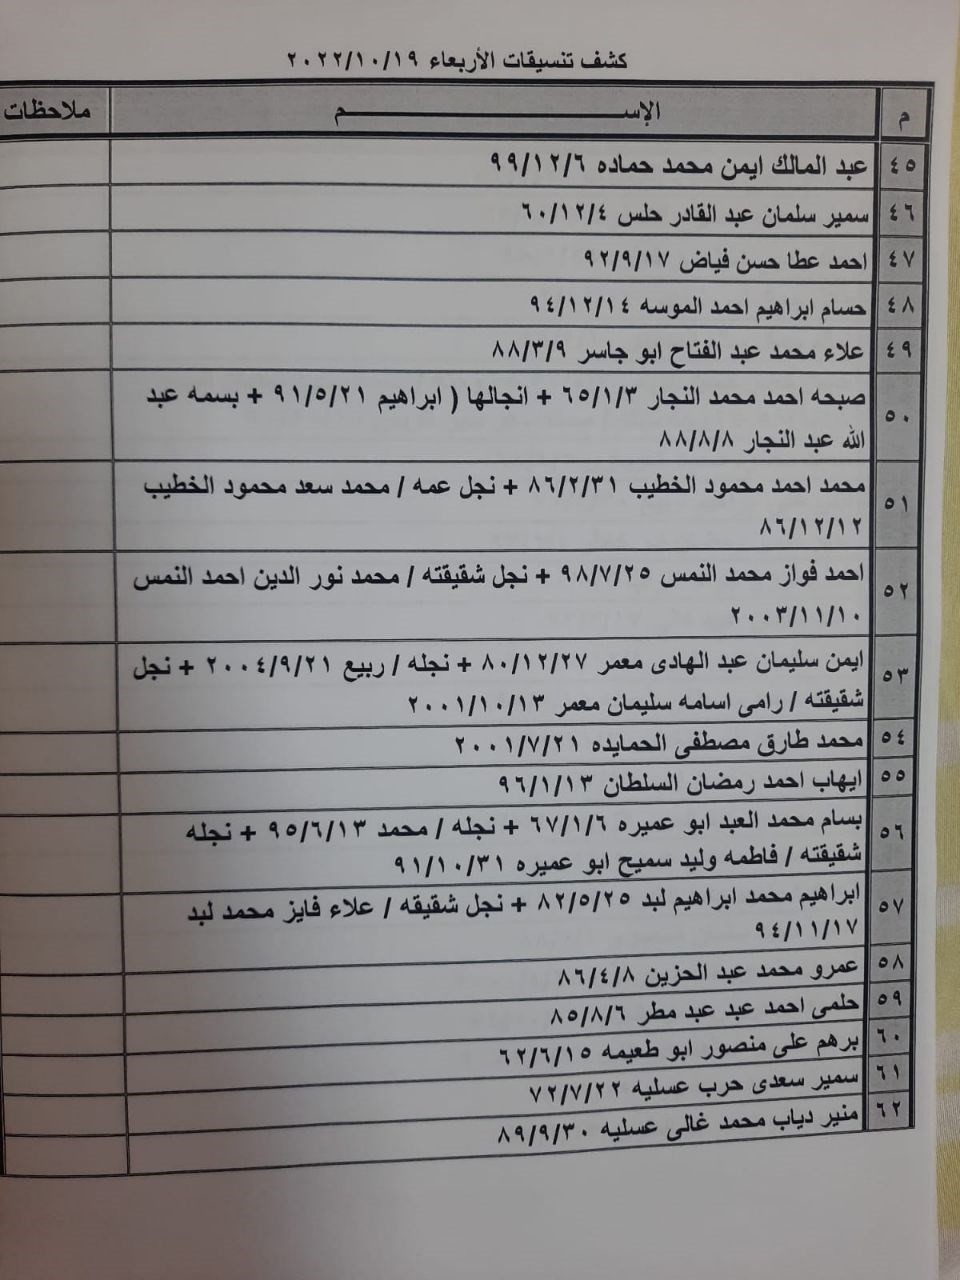 كشف تنسيقات الأربعاء ٢٠٢٢/١٠/١٩
م الإســـــــم ملاحظات
٤٥ عبد المالك ايمن محمد حماده ٩٩/١٢/٦
٤٦ سمير سلمان عبد القادر حلس ٦٠/١٢/٤
٤٧ احمد عطا حسن فياض ٩٢/٩/١٧
٤٨ حسام ابراهيم احمد الموسه ٩٤/١٢/١٤
٤٩ علاء محمد عبد الفتاح ابو جاسر ٨٨/٣/٩
٥٠ صبحه احمد محمد النجار ٦٥/١/٣ + انجالها ( ابراهيم ٩١/٥/٢١ + بسمه عبد
الله عبد النجار ٨٨/٨/٨
٥١ محمد احمد محمود الخطيب ٨٦/٢/٣١ + نجل عمه / محمد سعد محمود الخطيب
٨٦/١٢/١٢
٥٢ احمد فواز محمد النمس ٩٨/٧/٢٥ + نجل شقيقته / محمد نور الدين احمد النمس
٢٠٠٣/١١/١٠
٥٣ ايمن سليمان عبد الهادى معمر ٨٠/١٢/٢٧ + نجله / ربيع ٢٠٠٤/٩/٢١ + نجل
شقيقته / رامى اسامه سليمان معمر ٢٠٠١/١٠/١٣
٥٤ محمد طارق مصطفى الحمايده ٢٠٠١/٧/٢١
٥٥ ايهاب احمد رمضان السلطان ٩٦/١/١٣
٥٦ بسام محمد العبد ابو عميره ٦٧/١/٦ + نجله / محمد ٩٥/٦/١٣ + نجله
شقيقته / فاطمه وليد سميح ابو عميره ٩١/١٠/٣١
٥٧ ابراهيم محمد ابراهيم لبد ٨٢/٥/٢٥ + نجل شقيقه / علاء فايز محمد لبد
٩٤/١١/١٧
٥٨ عمرو محمد عبد الحزين ٨٦/٤/٨
٥٩ حلمى احمد عبد عبد مطر ٨٥/٨/٦
٦٠ برهم على منصور ابو طعيمه ٦٢/٦/١٥
٦١ سمير سعدى حرب عسليه ٧٢/٧/٢٢
٦٢ منير دياب محمد غالى عسليه ٨٩/٩/٣٠